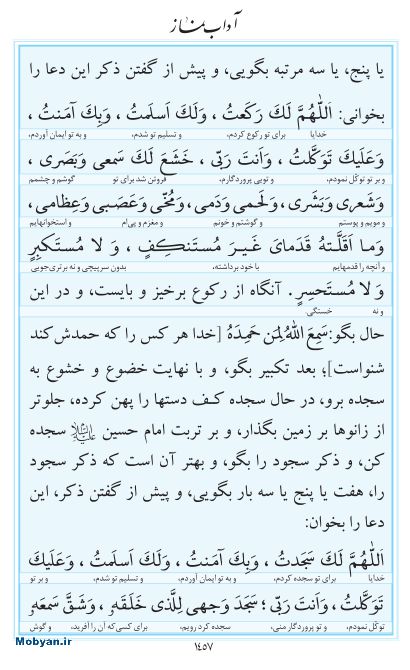 آداب نماز
یا پنج، یا سه مرتبه بگویی، و پیش از گفتن ذکر این دعا را
بخوانی: اَللّٰهُمَّ لَكَ رَكَعتُ ، وَلَكَ اَسلَمتُ ، وَبِكَ آمَنتُ ،
خدایا برای تو رکوع کردم، و تسلیم تو شدم، و به تو ایمان آوردم،
وَعَلَيكَ تَوَكَّلتُ ، وَاَنتَ رَبّى ، خَشَعَ لَكَ سَمعى وَبَصَرى ،
و بر تو توکّل نمودم، و تویی پروردگارم، فروتن شد برای تو گوشم و چشمم
وَشَعرى وَبَشَرى ، وَلَحمى وَدَمى ، وَمُخّى وَعَصَبى وَعِظامى ،
و مویم و پوستم و گوشتم و خونم و مغزم و پی‌ام و استخوانهایم
وَما اَقَلَّتهُ قَدَماىَ غَيـرَ مُستَنكِفٍ ، وَ لا مُستَكبِرٍ
و آنچه را قدمهایم با خود برداشته، بدون سرپیچی و نه برتری‌جویی
وَ لا مُستَحسِرٍ . آنگاه از رکوع برخیز و بایست، و در این
و نه خستگی.
حال بگو: سَمِعَ اللّٰهُ لِمَن حَمِدَهُ [خدا هر کس را که حمدش کند
شنواست]؛ بعد تکبیر بگو، و با نهایت خضوع و خشوع به
سجده برو، در حال سجده کف دستها را پهن کرده، جلوتر
از زانوها بر زمین بگذار، و بر تربت امام حسین علیه‌السلام سجده
کن، و ذکر سجود را بگو، و بهتر آن است که ذکر سجود
را، هفت یا پنج یا سه بار بگویی، و پیش از گفتن ذکر، این
دعا را بخوان:
اَللّٰهُمَّ لَكَ سَجَدتُ ، وَبِكَ آمَنتُ ، وَلَكَ اَسلَمتُ ، وَعَلَيكَ
خدایا برای تو سجده کردم، و به تو ایمان آوردم، و تسلیم تو شدم، و بر تو
تَوَكَّلتُ ، وَاَنتَ رَبّى ؛ سَجَدَ وَجهى لِلَّذى خَلَقَهُ ، وَشَقَّ سَمعَهُ
توکّل نمودم، و تو پروردگار منی، سجده کرد رویم، برای کسی‌که آن را آفرید، و گوش
Mobyan.ir
١٤٥٧